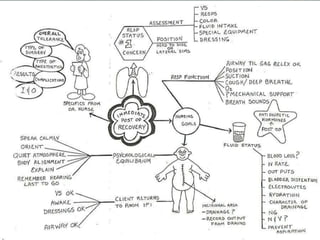 OVERALL
TOLERANCE
TYPE OF
SURGERY
TYPE OF
ANESTHETICS
RESULTS
COMPLICATIONS
I & O
SPECIFICS FROM
OR NURSE
RESP
STATUS
#1
CONCERN
ASSESSMENT
VS
RESPS
COLOR
FLUID INTAKE
SPECIAL EQUIPMENT
DRESSING
POSITION
HEAD TO SIDE OR
LATERAL SIMS
RESP FUNCTION
AIRWAY TIL GAG REFLEX OK
POSITION
SUCTION
COUGH/DEEP BREATHE
O2
MECHANICAL SUPPORT
BREATH SOUNDS
IMMEDIATE
POST OP
RECOVERY
NURSING
GOALS
ANTI DIURETIC
HORMONES
POST OP
FLUID STATUS
BLOOD LOSS?
IV RATE
OUT PUTS
BLADDER DISTENTION
ELECTROLYTES
HYDRATION
CHARACTER OF
DRAINAGE
NG
N & V?
PREVENT
ASPIRATION
SPEAK CALMLY
ORIENT
QUIET ATMOSPHERE
BODY ALIGNMENT
EXPLAIN
REMEMBER HEARING
LAST TO GO
PSYCHOLOGICAL
EQUILIBRIUM
VS OK
AWAKE
DRESSINGS OK
AIRWAY OK
CLIENT RETURNS
TO ROOM IF:
INCISIONAL AREA
DRAINAGE?
RECORD OUTPUT
FROM DRAINS